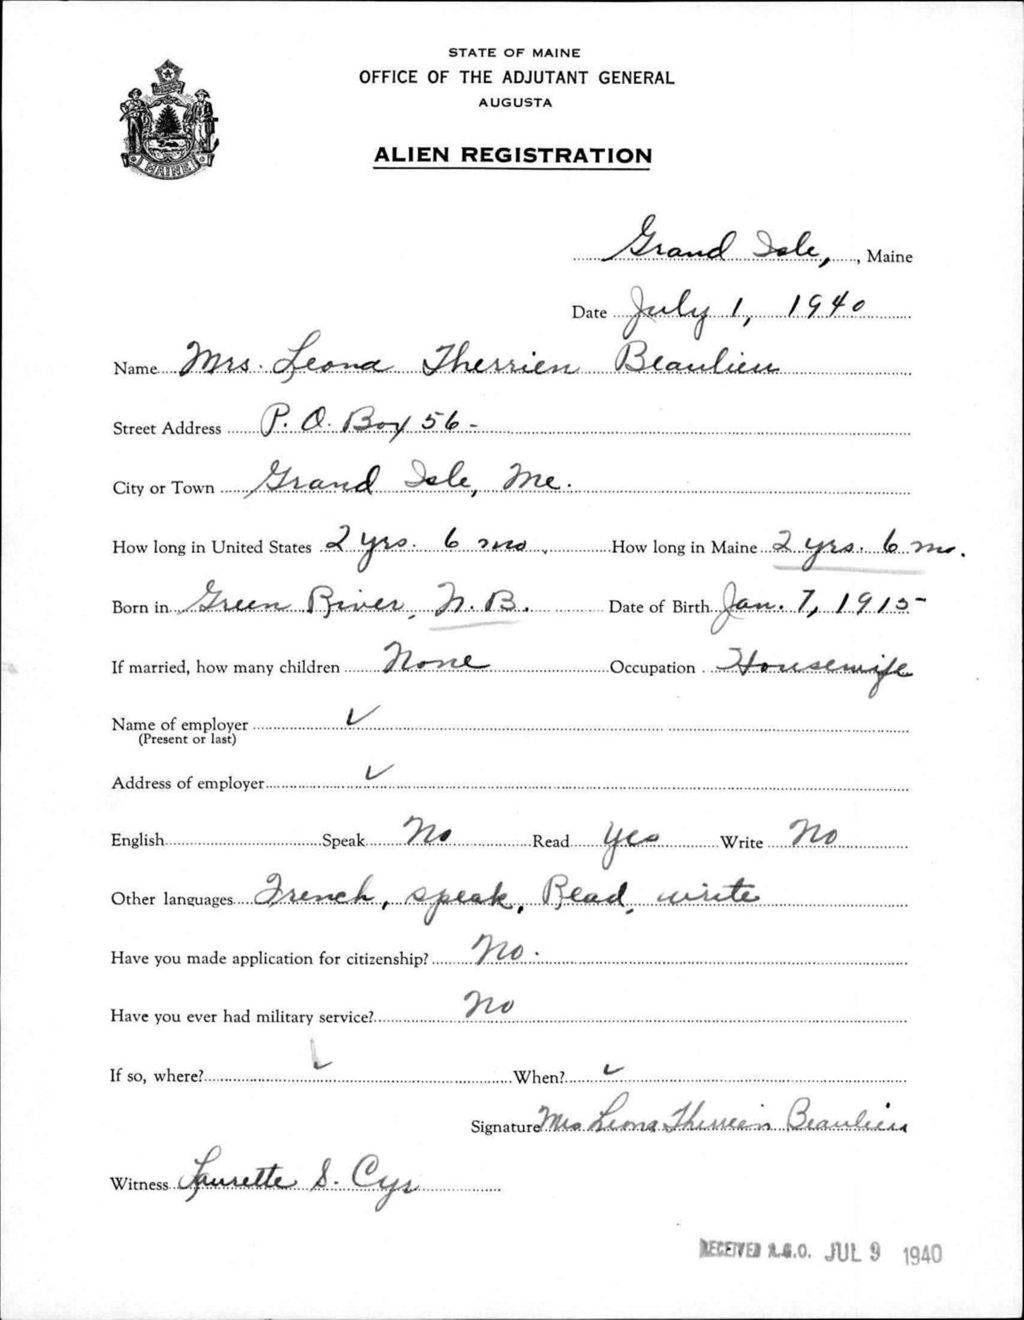 STATE OF MAINE
OFFICE OF THE ADJUTANT GENERAL
AUGUSTA
ALIEN REGISTRATION
MAINE
Grand Isle, , Maine
Date July 1, 1940
Name Mrs. Leona Therrien Beaulieu
Street Address P. O. Box 56-
City or Town Grand Isle, Me.
How long in United States 2 yrs. 6 mo. How long in Maine 2 yrs. 6 mo.
Born in Green River, N.B. Date of Birth Jan. 7, 1915
If married, how many children None Occupation Housewife
Name of employer ✓
(Present or last)
Address of employer ✓
English Speak No Read Yes Write No
Other languages French, speak, Read, write
Have you made application for citizenship? No.
Have you ever had military service? No
If so, where? ✓ When? ✓
Signature Mrs Leona Therrien Beaulieu
Witness Laurette S. Cyr
RECEIVED A.G.O. JUL 9 1940